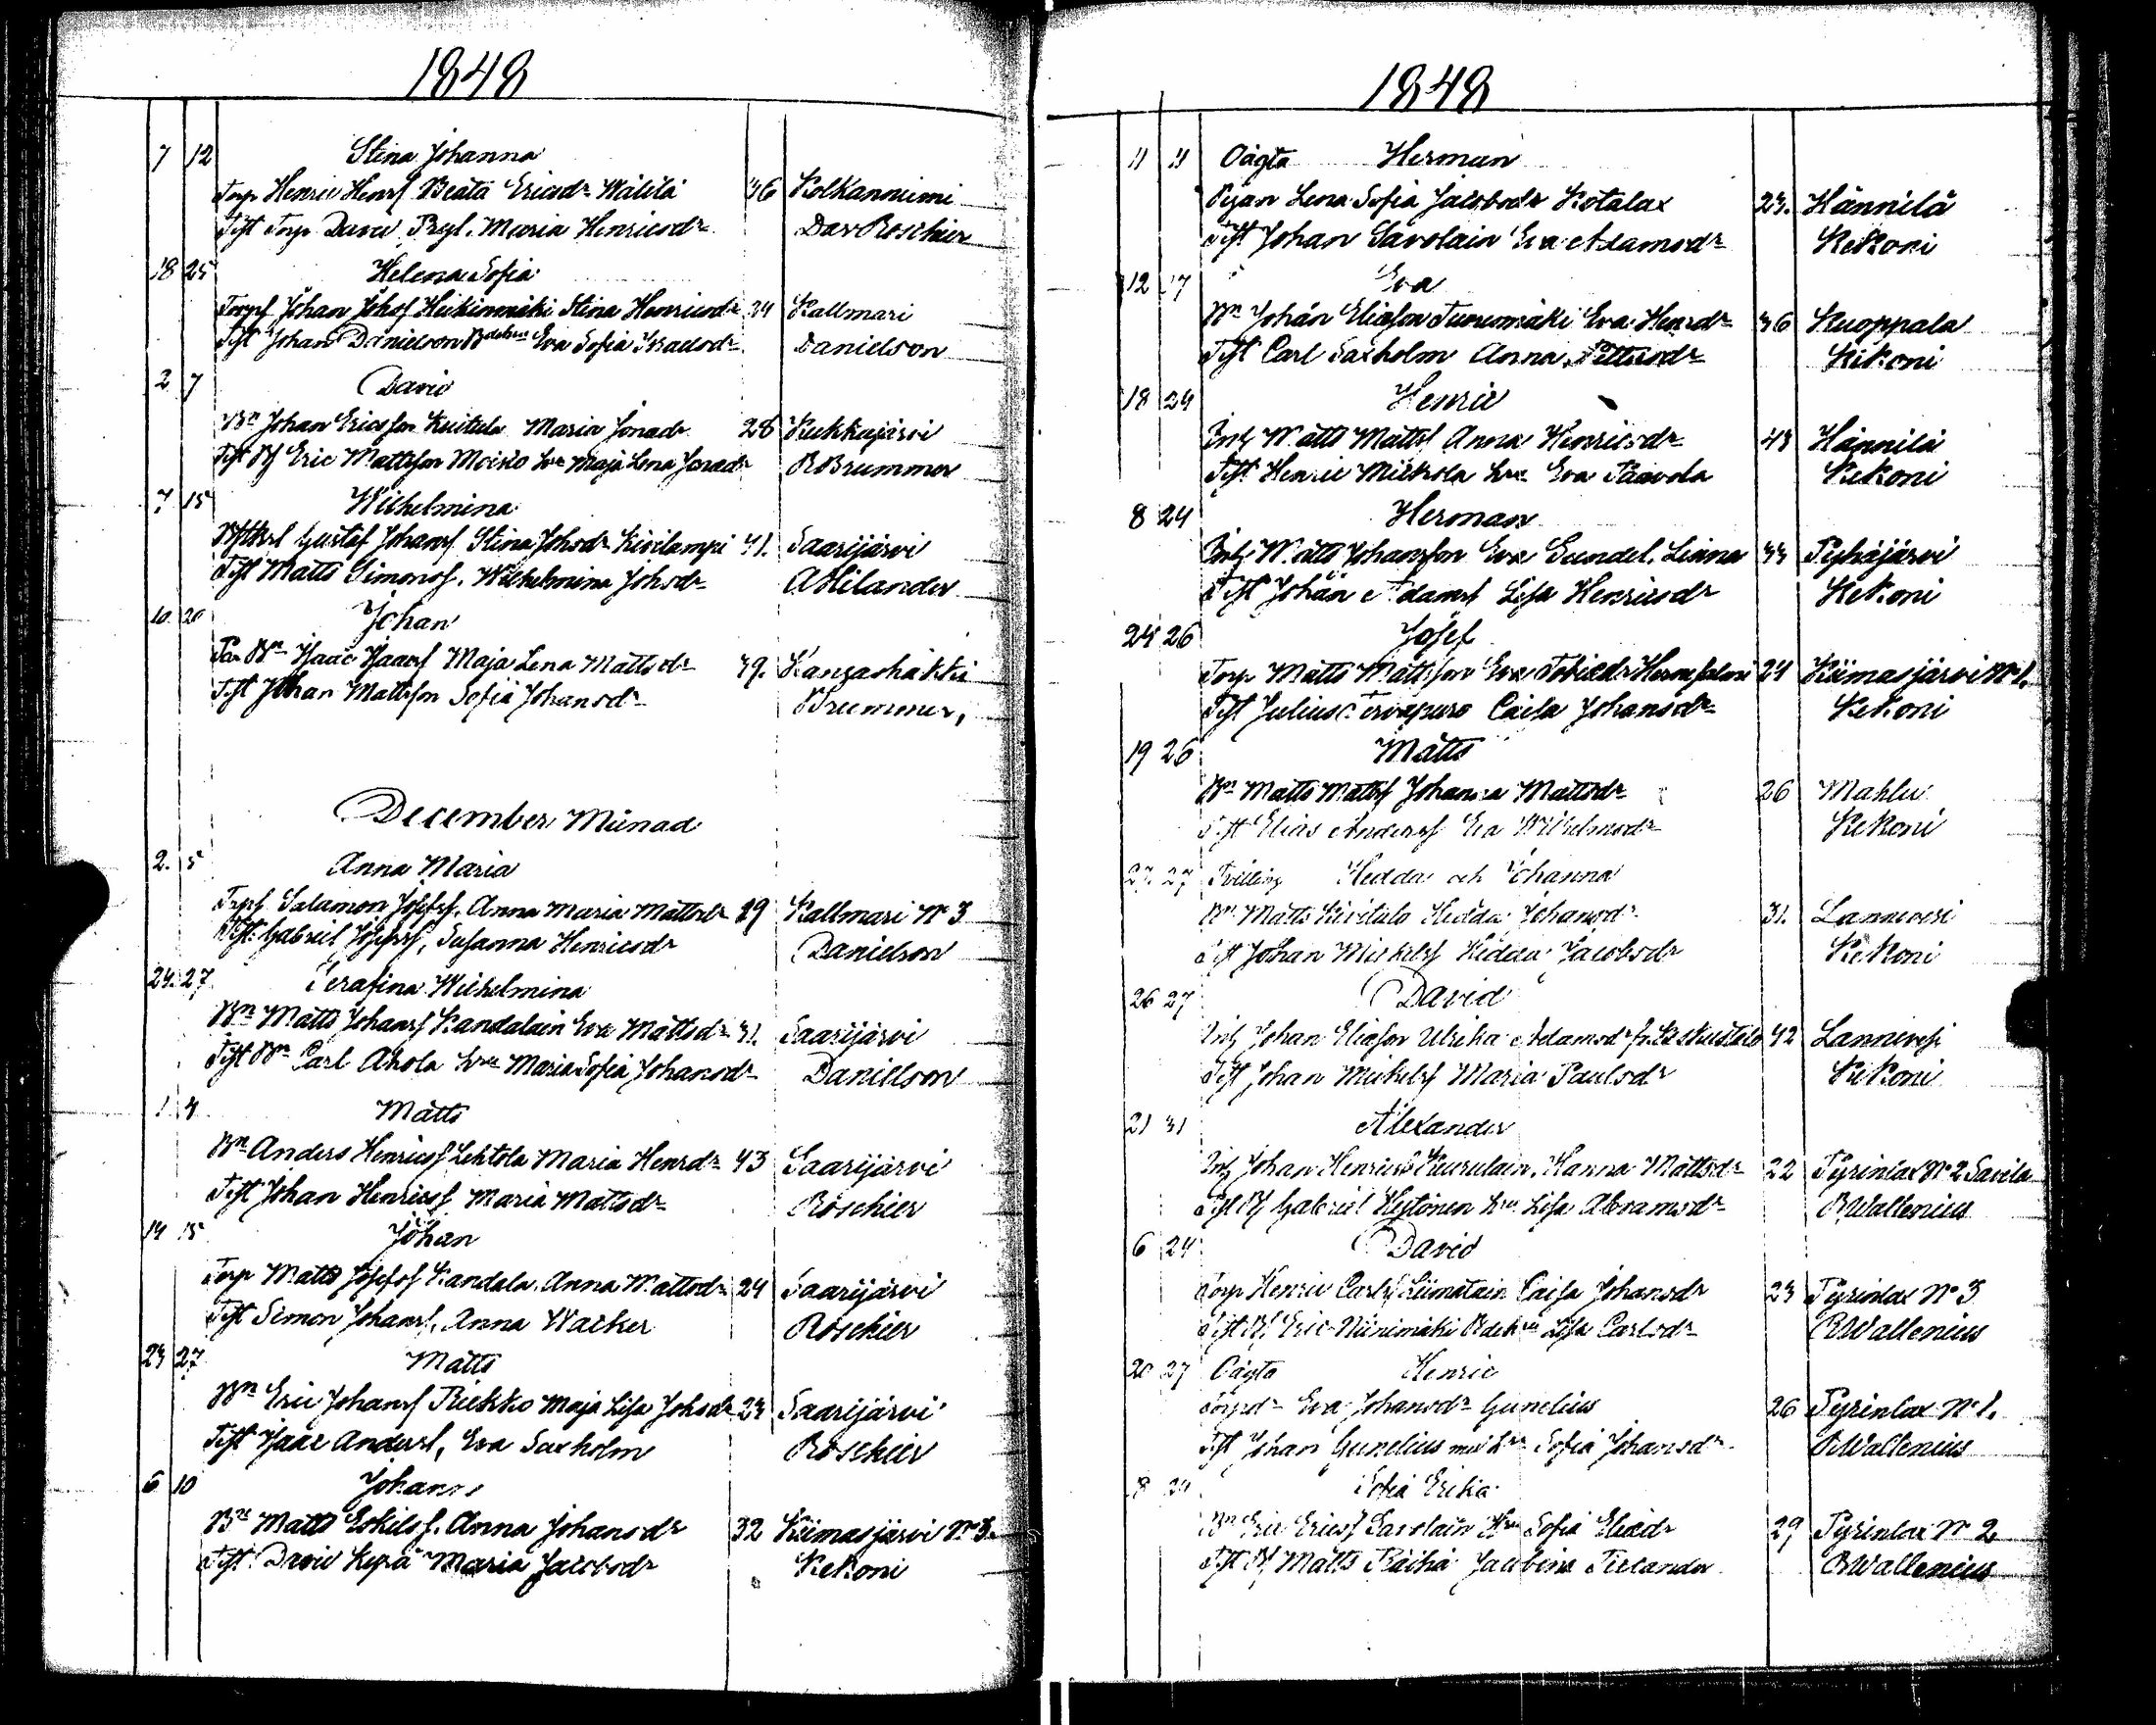 1848
7 12 Stina Johanna
Torp Henric Henrs Beata Ericsdr Wälilä 36 Kolkanniemi
Test Torp David Maria Henricsdr Dav Roschier
18 25 Helena Sofia
Torps Johan Johs Heikinmäki Stina Henricsdr 24 Kallmari
Test Johan Danielson Eva Sofia Danielson
2 7 David
Bn Johan Ericsson Kuitula Maria Jonadr 28 Kukkajärvi
Test Bs Eric Mattsson Moisio hru Maja Lena Jonadr Brummer
7 15 Wilhelmina
Gustaf Johans Stina Johsdr Kivilampi 41. Saarijärvi
Test Matts Simons, Wilhelmina Johsdr AHilander
10 20 Johan
Bn Isaac Isaacs Maja Lena Mattsdr 39. Kangashäkki
Test Johan Mattsson Sofia Johansdr Brummer,
December Månad
2. 5 Anna Maria
Torps Salamon Josefs. Anna Maria Mattsdr 29 Kallmari No 3
Test. Gabriel Josefs, Susanna Henricsdr Danielson
24. 27 Serafina Wilhelmina
Bn Matts Johans Kandalain Eva Mattsdr 31. Saarijärvi
Test Bn Carl Ahola hru Maria Sofia Johansdr Danillson
1 4 Matts
Bn Anders Henrics Lehtola Maria Henrdr 43 Saarijärvi
Test Johan Henrics Maria Mattsdr Roschier
14 15 Johan
Torp Matts Josefs Kandala. Anna Mattsdr 24 Saarijärvi
Test Simon Johans, Anna Wacker Roschier
23 27 Matts
Bn Eric Johans Riekko Maja Lisa Johsdr 23 Saarijärvi
Test Isaac Anders, Eva Saxholm Roschier
6 10 Johan
Bn Matts Eskils. Anna Johansdr 32 Kiimasjärvi No 3.
Test David Kyrä Maria Jacobsdr Kekoni
1848
11 11 Oägta Herman
Pigan Lena Sofia Jacobsdr Kotalax 23. Hännilä
Test Johan Savolain Eva Adamsdr Kekoni
12 17 Eva
Bn Johan Eliasson Turiomäki Eva Henrdr 36 Kuoppala
Test Carl Saxholm Anna Pettersdr Kekoni
18 24 Henric
Inh Matts Matts Anna Henricsdr 43 Hännilä
Test Henric Mickola hru Eva Paavola Kekoni
8 24 Herman
Inh Matts Johansson Eva Gundel. Linna 33 Pyhäjärvi
Test Johan Adams Lisa Henricsdr Kekoni
24 26 Josef
Torp Matts Mattsson Eva Tobiedr 24 Kiimasjärvi No 1.
Test Julius Tervapuro Caisa Johansdr Kekoni
19 26 Matts
Bn Matts Matts Johanna Mattsdr 26 Mahlu
Test Elias Anders Eva Wilhelmsdr Kekoni
27 27 Tvilling Hedda och Johanna
Bn Matts Kivitalo Hedda Johansdr 31. Lannevesi
Test Johan Mickels Hedda Jacobsdr Kekoni
26 27 David
Inh Johan Eliasson Ulrika Adamsdr 42 Lannevesi
Test Johan Mickels Maria Paulsdr Kekoni
21 31 Alexander
Inh Johan Henrics Kuurulain. Hanna Mattsdr 22 Pyrinlax No 2 Savila
Test Bs Gabriel Hytönen hru Lisa Abramsdr RWallenius
6 24 David
Torp Henric Carls Liimatain Caisa Johansdr 23 Pyrinlax No 3
Test Bs Eric Niinimäki Lisa Carlsdr RWallenius
20 27 Oägta Henric
Torpdr Eva Johansdr Gunelius 26 Pyrinlax No 1.
Test Johan Gunelius med hru Sofia Johansdr RWallenius
8 24 Sofia Erika
Bn Eric Erics Savolain Hru Sofia Eliaedr 29 Pyrinlax No 2
Test Bs Matts Räihä Jacobina Tillander RWallenius